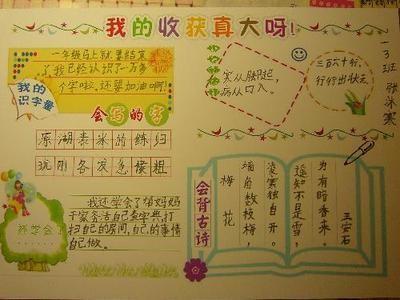 我的收获真大呀!
一年级马上就要结束
了,我已经认识了一万多
个字啦,还要加油啊!
我的
识字量
寒从脚起,
病从口入。
三百六十行,
行行出状元
一3班
会写的字
原湖表米的练归
玩刚各友急候粗
我还学会了帮妈妈
干家务活自己查字典,打
扫自己的房间,自己的事情
自己做。
还学会了
会背古诗
梅花
墙角数枝梅,
凌寒独自开。
遥知不是雪,
为有暗香来。
王安石